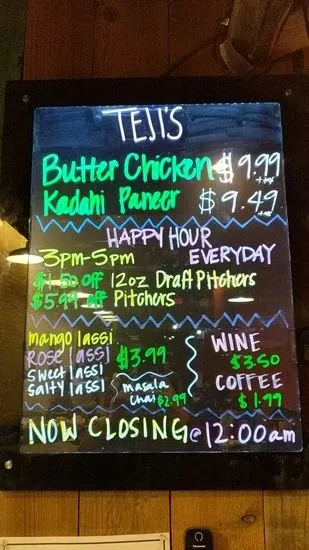 TEJI'S
Butter Chicken $9.99
+tax
Kadahi Paneer $9.49
+tax
HAPPY HOUR
3pm-5pm EVERYDAY
$1.50 off 12oz Draft Pitchers
$5.99 off Pitchers
mango lassi
Rose lassi $3.99
sweet lassi
salty lassi
masala
chai $2.99
WINE
$3.50
COFFEE
$1.99
NOW CLOSING @ 12:00am